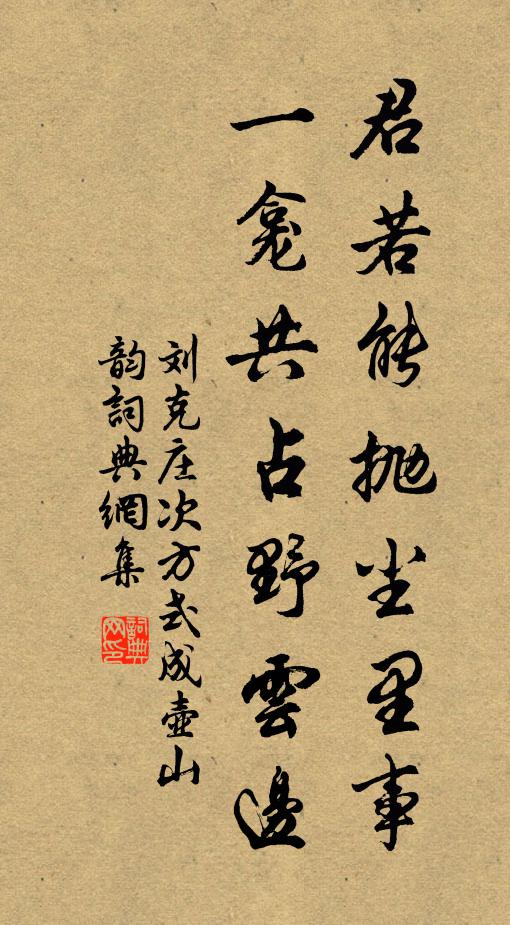 君若能抛尘里事
一龛共占野雲邊
刘克庄次方武成壶山
韵詞典網集
詞典网印